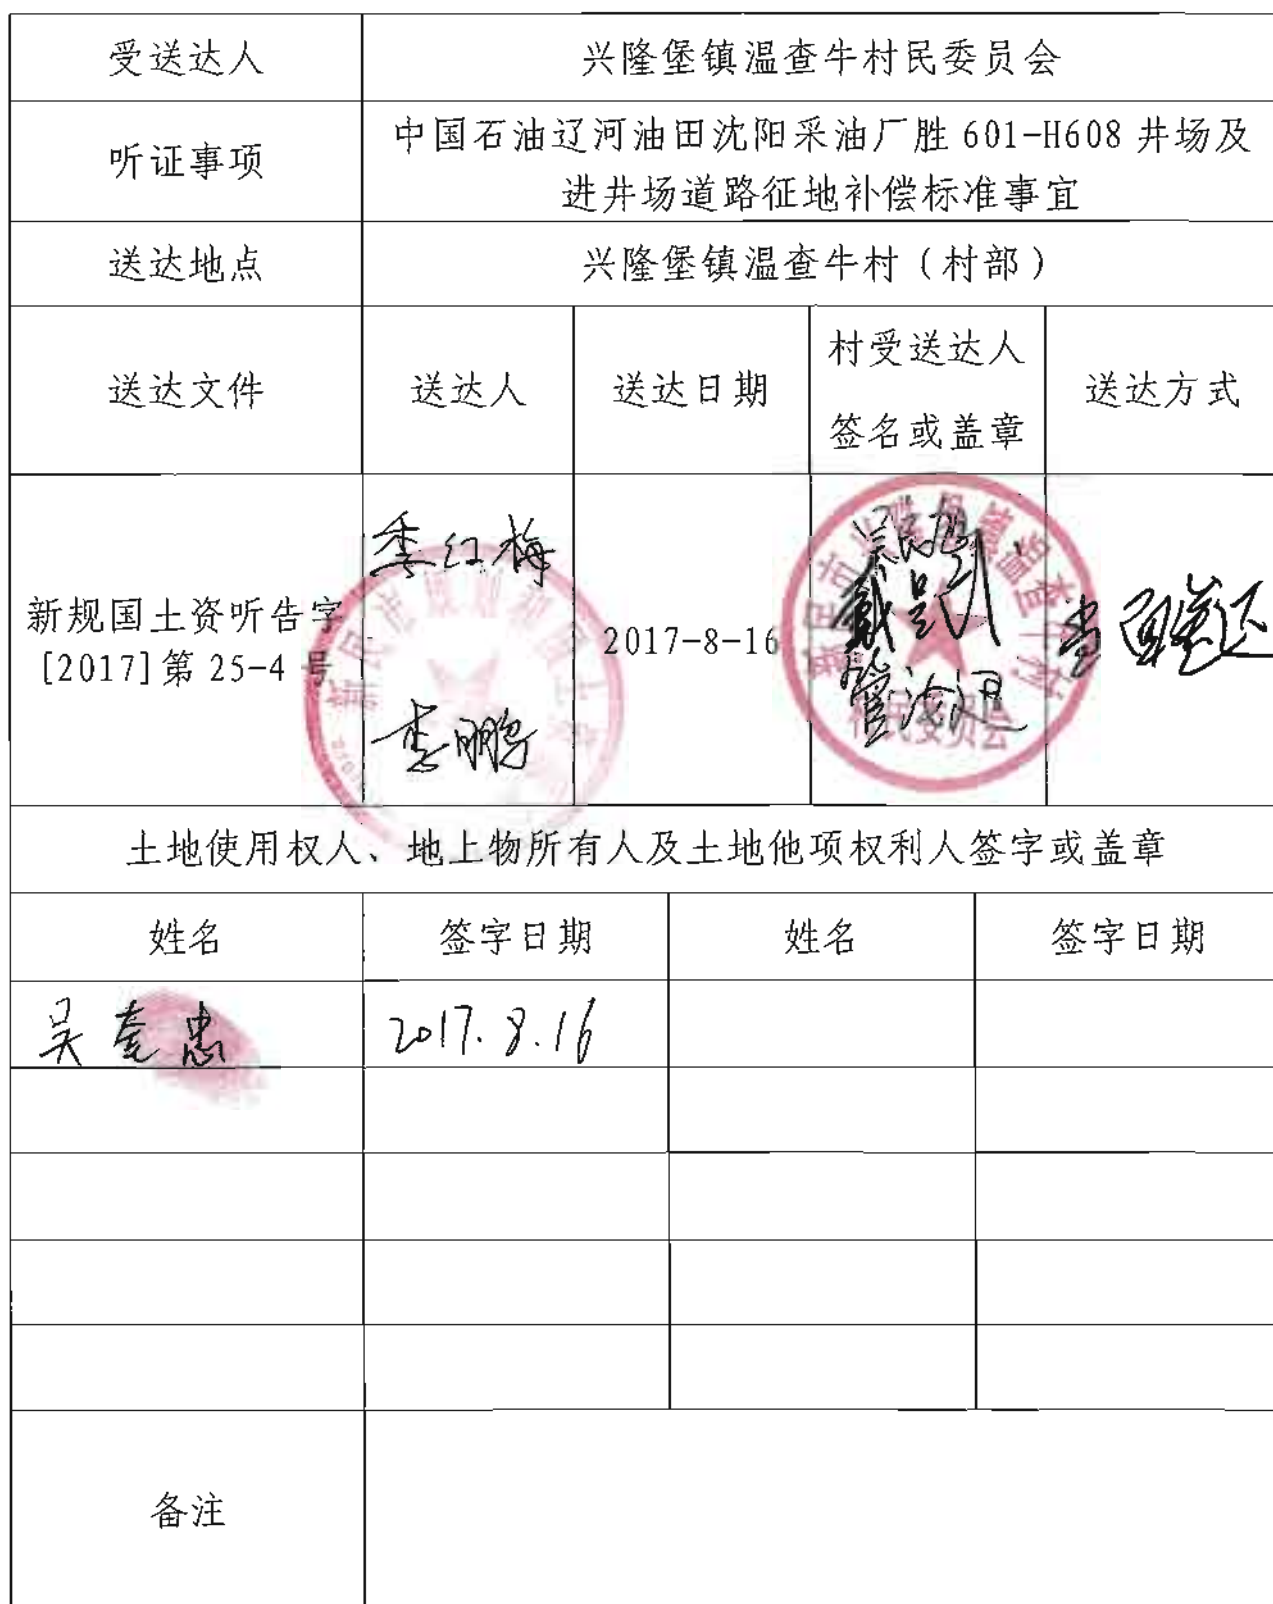 受送达人 兴隆堡镇温查牛村民委员会
听证事项 中国石油辽河油田沈阳采油厂胜 601-H608 井场及
进井场道路征地补偿标准事宜
送达地点 兴隆堡镇温查牛村（村部）
送达文件 送达人 送达日期 村受送达人
签名或盖章 送达方式
季红梅
新规国土资听告字
[2017]第 25-4 号 2017-8-16
李鹏
村民委员会
土地使用权人、地上物所有人及土地他项权利人签字或盖章
姓名 签字日期 姓名 签字日期
吴奎忠 2017.8.16
备注